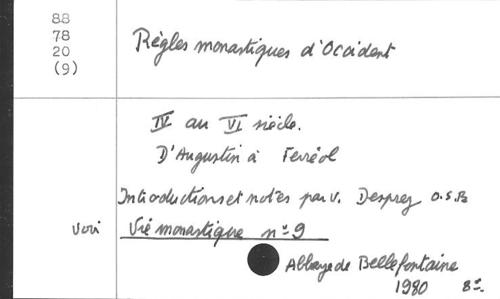 88
78
20
(9)
Règles monastiques d'Occident
IV au VI siècle.
D'Augustin à Ferréol
Introductions et notes par V. Desprez O.S.B.
Voir Vie monastique n° 9
Abbaye de Bellefontaine
1980 8°.